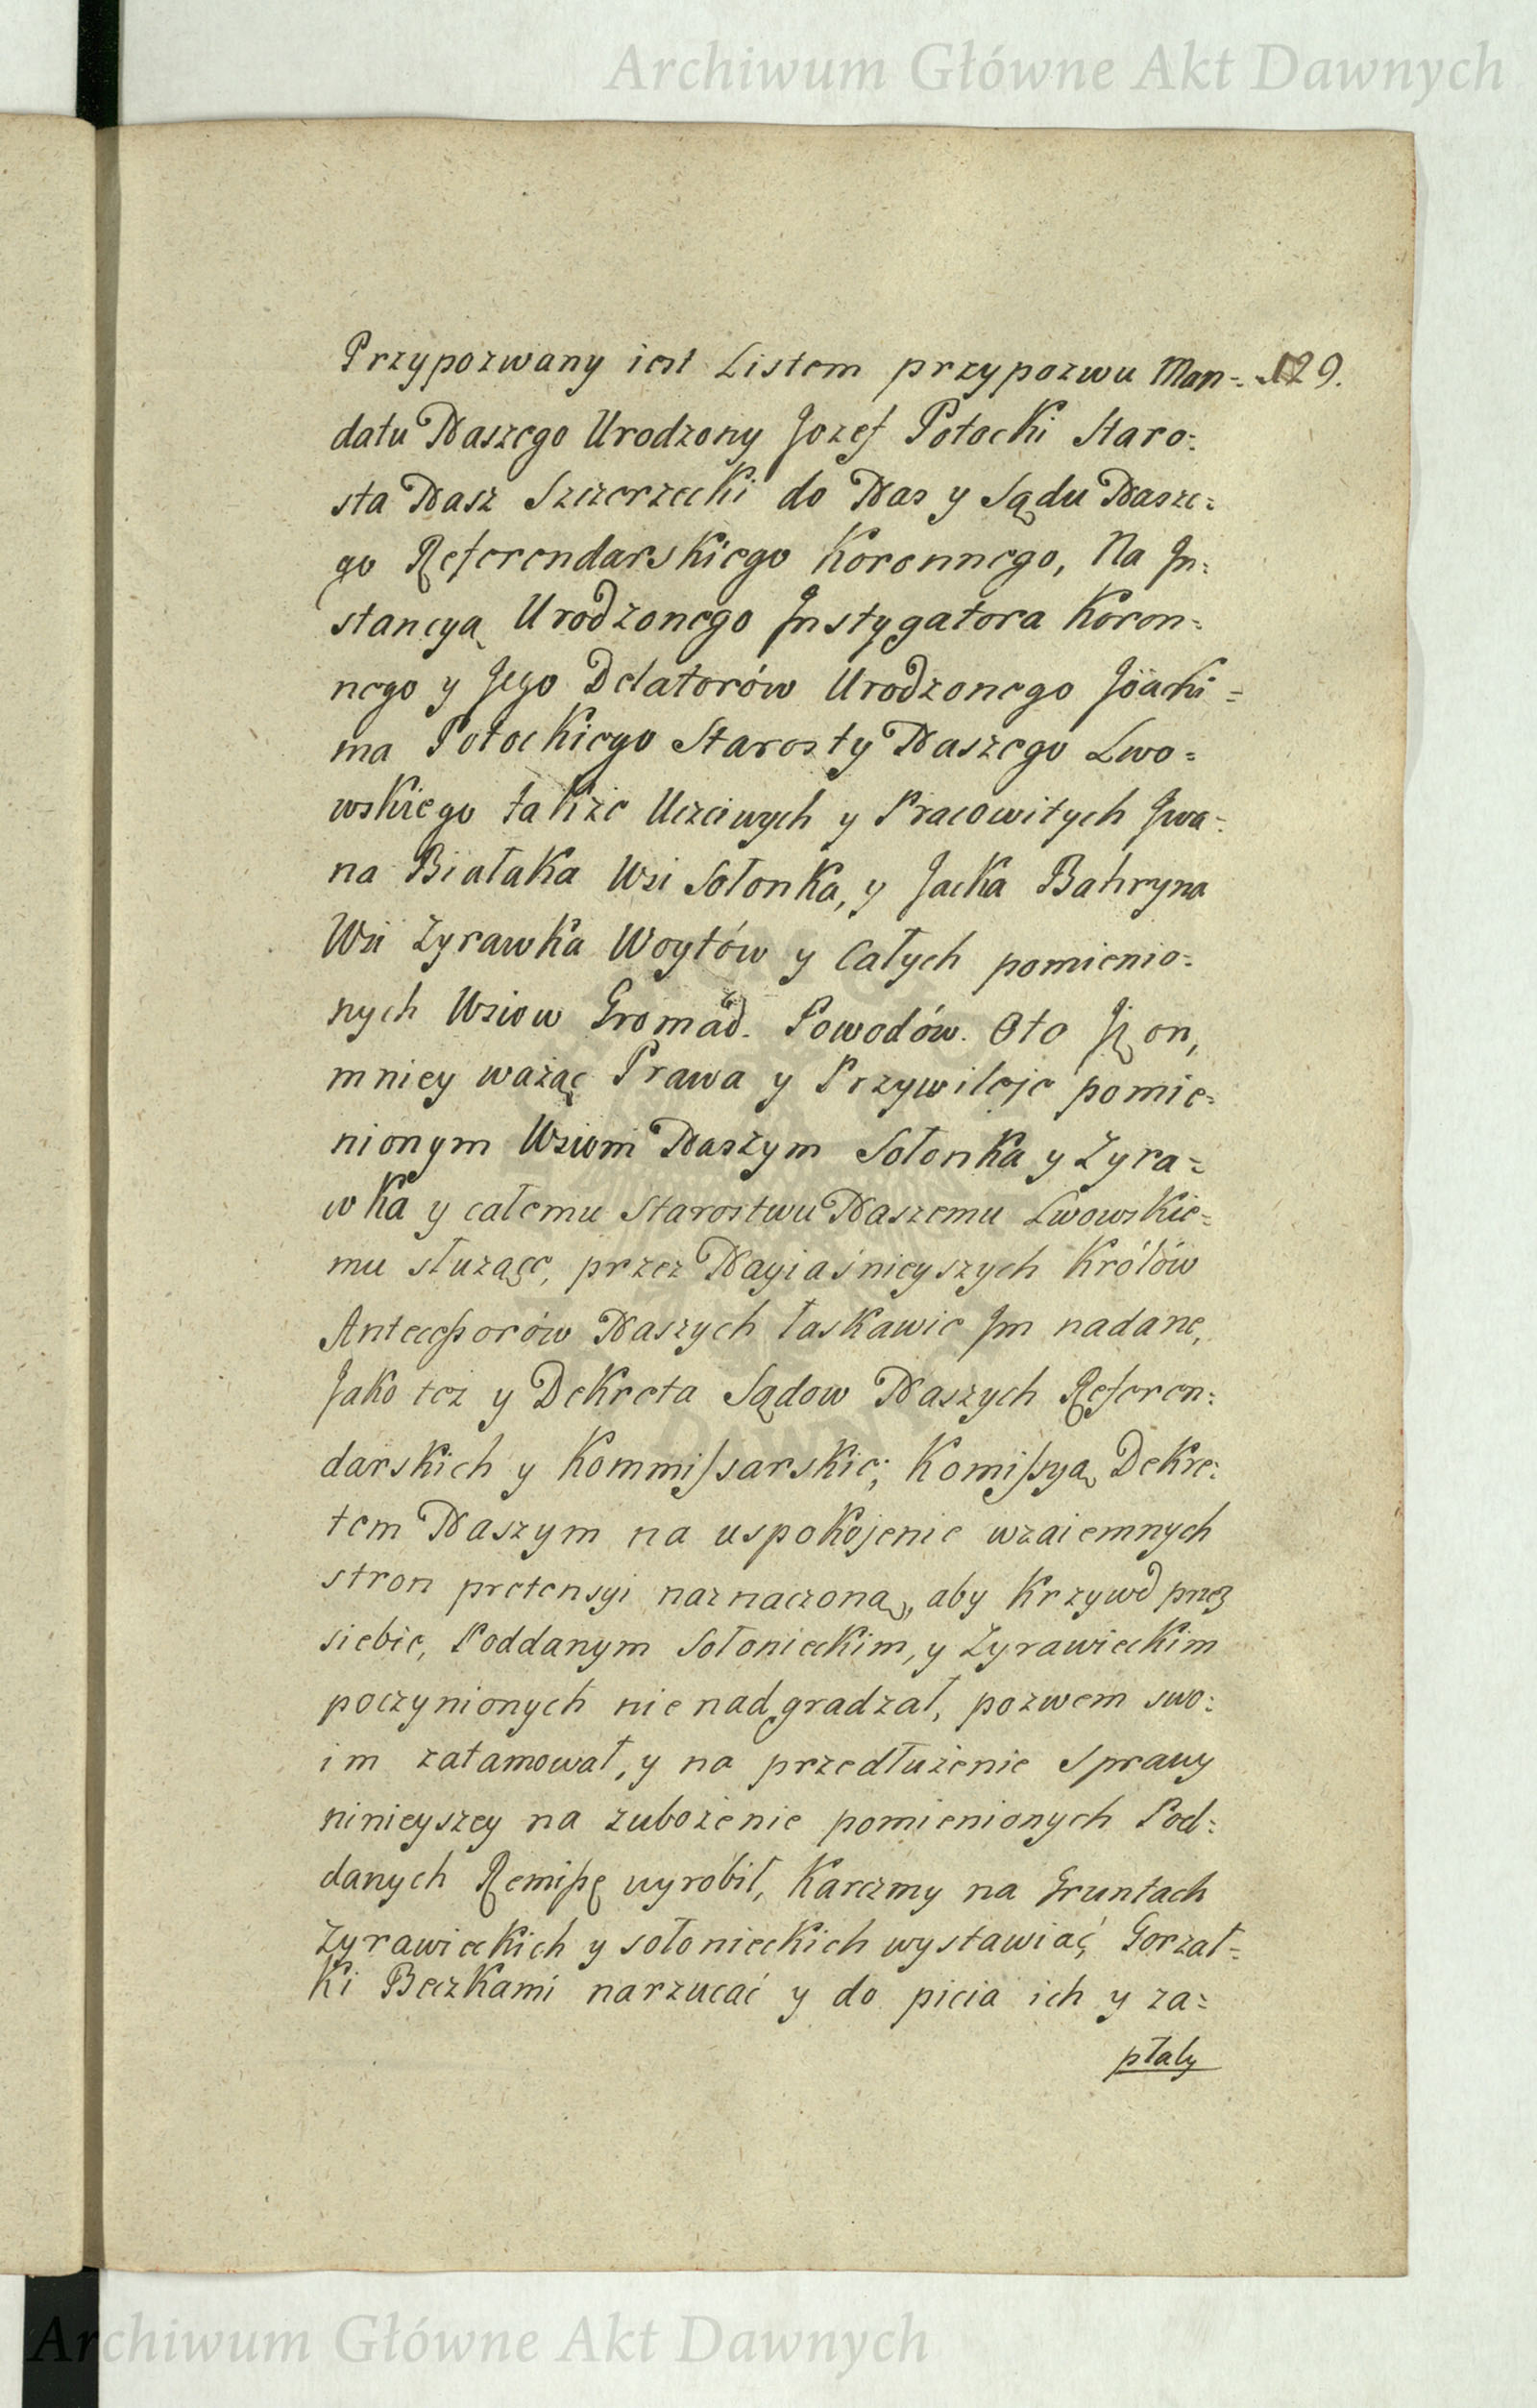 Archiwum Główne Akt Dawnych
Przypozwany iest Listem przypozwu Man= 129.
datu Naszego Urodzony Jozef Potocki Staro=
sta Nasz Szczerzecki do Nas y Sądu Nasze=
go Referendarskiego Koronnego, Na In=
stancyą Urodzonego Instygatora Koron=
nego y Jego Delatorów Urodzonego Joachi=
ma Potockiego Starosty Naszego Lwo=
wskiego także Uczciwych y Pracowitych Iwa=
na Białaka Wsi Sołonka, y Jacka Bahryna
Wsi Zyrawka Woytów y Całych pomienio=
nych Wsiow Gromad. Powodów. Oto Iż on,
mniey ważąc Prawa y Przywileje pomie=
nionym Wsiom Naszym Sołonka y Zyra=
wka y całemu Starostwu Naszemu Lwowskie=
mu służące, przez Nayiaśnieyszych Królów
Antecessorów Naszych łaskawie Im nadane,
Jako też y Dekreta Sądow Naszych Referen=
darskich y Kommissarskie; Komissyą Dekre=
tem Naszym na uspokojenie wzaiemnych
stron pretensyi naznaczoną, aby Krzywd przez
siebie, Poddanym Sołonieckim, y Zyrawieckim
poczynionych nie nadgradzał, pozwem swo=
im zatamował, y na przedłużenie Sprawy
ninieyszey na zubożenie pomienionych Pod=
danych Remissę wyrobił, Karczmy na Gruntach
Zyrawieckich y sołonieckich wystawiać Gorzał=
Ki Beczkami narzucać y do picia ich y za=
płaty
Archiwum Główne Akt Dawnych